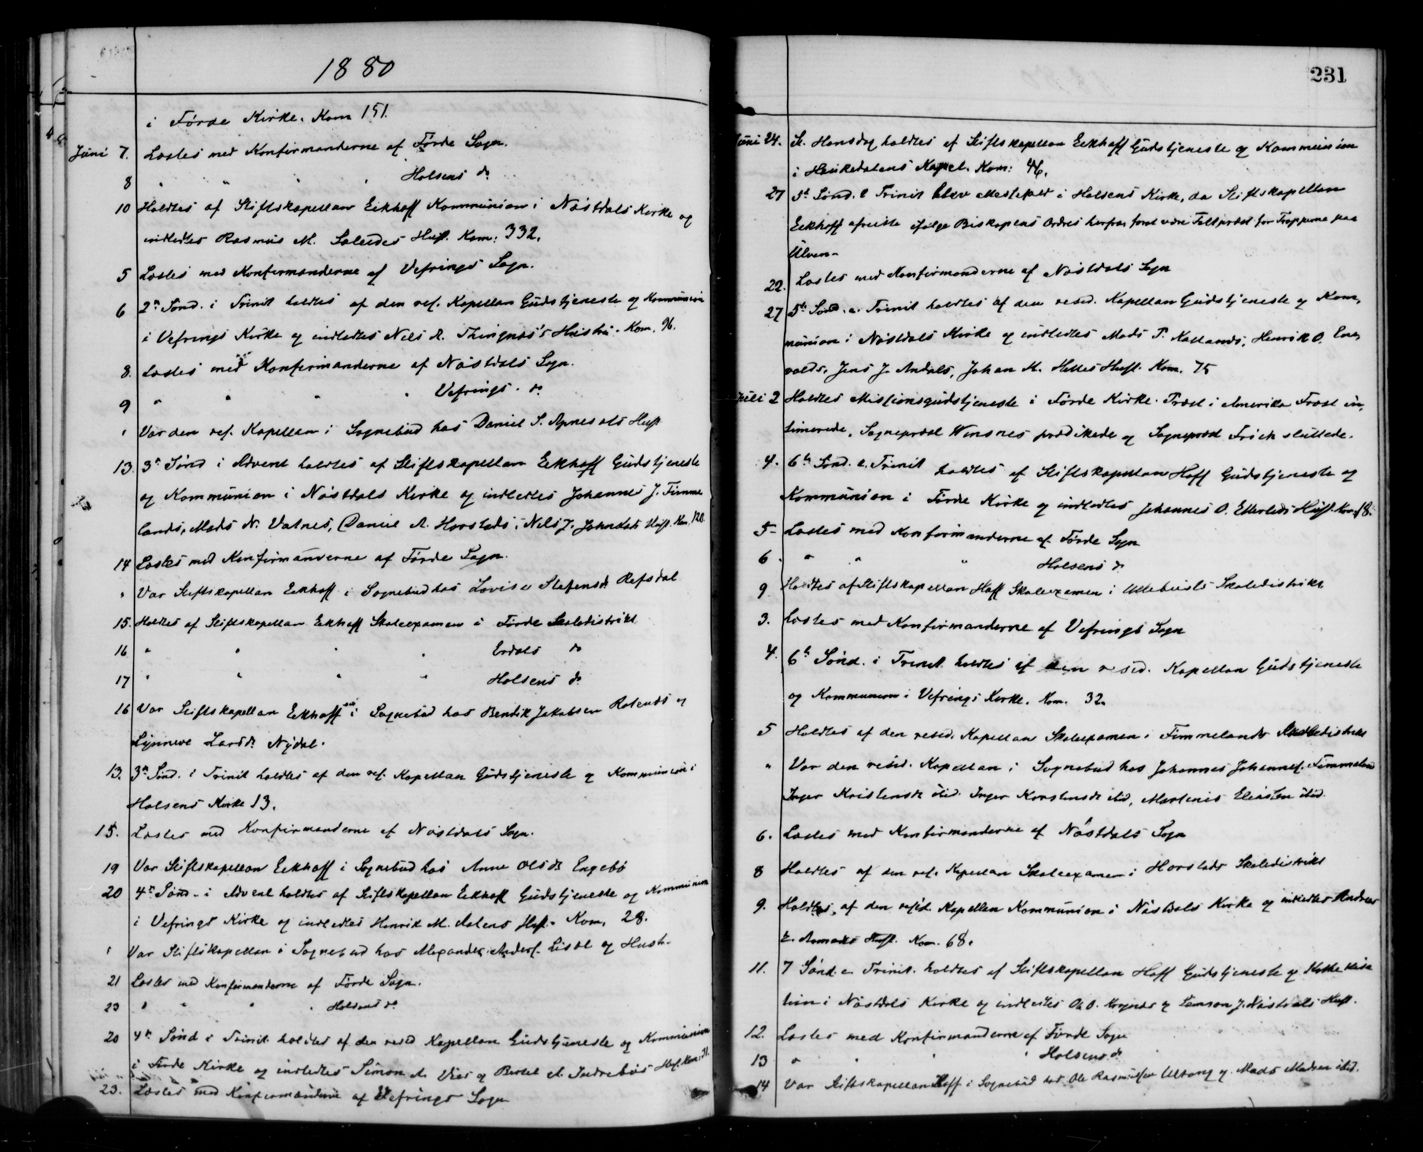 1880
i Førde Kirke. Kom 151.
Juni 7. Læstes med Konfirmanderne af Førde Sogn.
8 " " " Holsens do
10 Holdtes af Stiftskapellan Eckhoff Kommunion i Nöstdals Kirke og
indledtes Rasmus M. Hust. Kom: 332.
5 Læstes med Konfirmanderne af Vefrings Sogn.
6 2n Sønd. i Trinit holdtes af den res. Kapellan Gudstjeneste og Kommunion
i Vefrings Kirke og indledtes Nils R. Thingnæs's Hustru. Kom. 96.
8. Læstes med Konfirmanderne af Nöstdals Sogn.
9 " " " " Vefrings do
" Var den res. Kapellan i Sognebud hos Daniel S. Hust
13. 3n Sønd i Advent holdtes af Stiftskapellan Eckhoff Gudstjeneste
og Kommunion i Nöstdals Kirke og indledtes Johannes J. Timme
lands, Mads N. Vatnes, Daniel A. Horstads, Nils J. Hust. Kom. 120.
14 Læstes med Konfirmanderne af Førde Sogn.
" Var Stiftskapellan Eckhoff i Sognebud hos Lovise Stefensd. Refsdal
15. Holdtes af Stiftskapellan Eckhoff Skoleexamen i Førde Skoledistrikt
16 " " " " Erdals do
17 " " " " Holsens do
16 Var Stiftskapellan Eckhoff i Sognebud hos Bendik Jakobsen og
Larsd. Nydal.
13. 3n Sönd. i Trinit holdtes af den res. Kapellan Gudstjeneste og Kommunion i
Holsens Kirke 13.
15. Læstes med Konfirmanderne af Nöstdals Sogn.
19 Var Stiftskapellan Eckhoff i Sognebud hos Anne Olsd. Engebø
20 4n Sönd. i Advent holdtes af Stiftskapellan Eckhoff Gudstjeneste og Kommunion
i Vefrings Kirke og indledtes Henrik M. Hust. Kom. 28.
" Var Stiftskapellan i Sognebud hos Alexander Anders. og Hust.
21 Læstes med Konfirmanderne af Førde Sogn.
23 " " " " Holsens do
20 4n Sönd i Trinit holdtes af den resid Kapellan Gudstjeneste og Kommunion
i Førde Kirke og indledtes Simon A. Vies og Bertel A. Hust. Kom.
23. Læstes med Konfirmanderne af Vefrings Sogn
231
Juni 24. St. Hansdag holdtes af Stiftskapellan Eckhoff Gudstjeneste og Kommunion
i Haukedalens Kapel. Kom: 46.
27 5t Sønd. e Trinit blev Messefald i Holsens Kirke, da Stiftskapellan
Eckhoff afreiste ifølge Biskopens Ordres herfra for at være Feltprest for Tropperne paa
Ulven.
22. Læstes med Konfirmanderne af Nöstdals Sogn
27 5t Sønd. e. Trinit holdtes af den resid. Kapellan Gudstjeneste og Kom,
munion i Nöstdals Kirke og indledtes Mads P. Henrik O.
Jens J. Andals, Johan M. Hust. Kom. 75
Juli 2 Holdtes Missionsgudstjeneste i Førde Kirke. Præst i Amerika Frost in,
timerede, Sogneprest Winsnes prædikede og Sogneprest Frich sluttede.
4. 6te Sønd. e. Trinit holdtes af Stiftskapellan Hoff Gudstjeneste og
Kommunion i Førde Kirke og indledtes Johannes O. Hust. Kom. 18.
5 Læstes med Konfirmanderne af Førde Sogn
6 " " " Holsens do
9 Holdtes af Stiftskapellan Hoff Skoleexamen i Skoledistrikt
3. Læstes med Konfirmanderne af Vefrings Sogn
4. 6te Sönd. i Trinit. holdtes af den resid. Kapellan Gudstjeneste
og Kommunion i Vefrings Kirke. Kom. 32.
5 Holdtes af den resid. Kapellan Skoleexamen i Timmelands Skoledistrikt
" Var den resid. Kapellan i Sognebud hos Johannes Johannes. Timmeland
Inger Kristensd. ibid. Inger Karstensd. ibid, Martenis Eliassen ibid.
6. Læstes med Konfirmanderne af Nöstdals Sogn
8 Holdtes af den res. Kapellan Skoleexamen i Horstads Skoledistrikt
9. Holdtes af den resid. Kapellan Kommunion i Nöstdals Kirke og indledtes Andreas
Hust. Kom. 68.
11. 7 Sønd e. Trinit. holdtes af Stiftskapellan Hoff Gudstjeneste og
i Nöstdals Kirke og indledtes Ole O. og Samson J. Nöstdals Hust.
12. Læstes med Konfirmanderne af Førde Sogn
13 " " " Holsens do
14 Var Stiftskapellan Hoff i Sognebud hos Ole Rasmussen og Mads Madsen ibid.